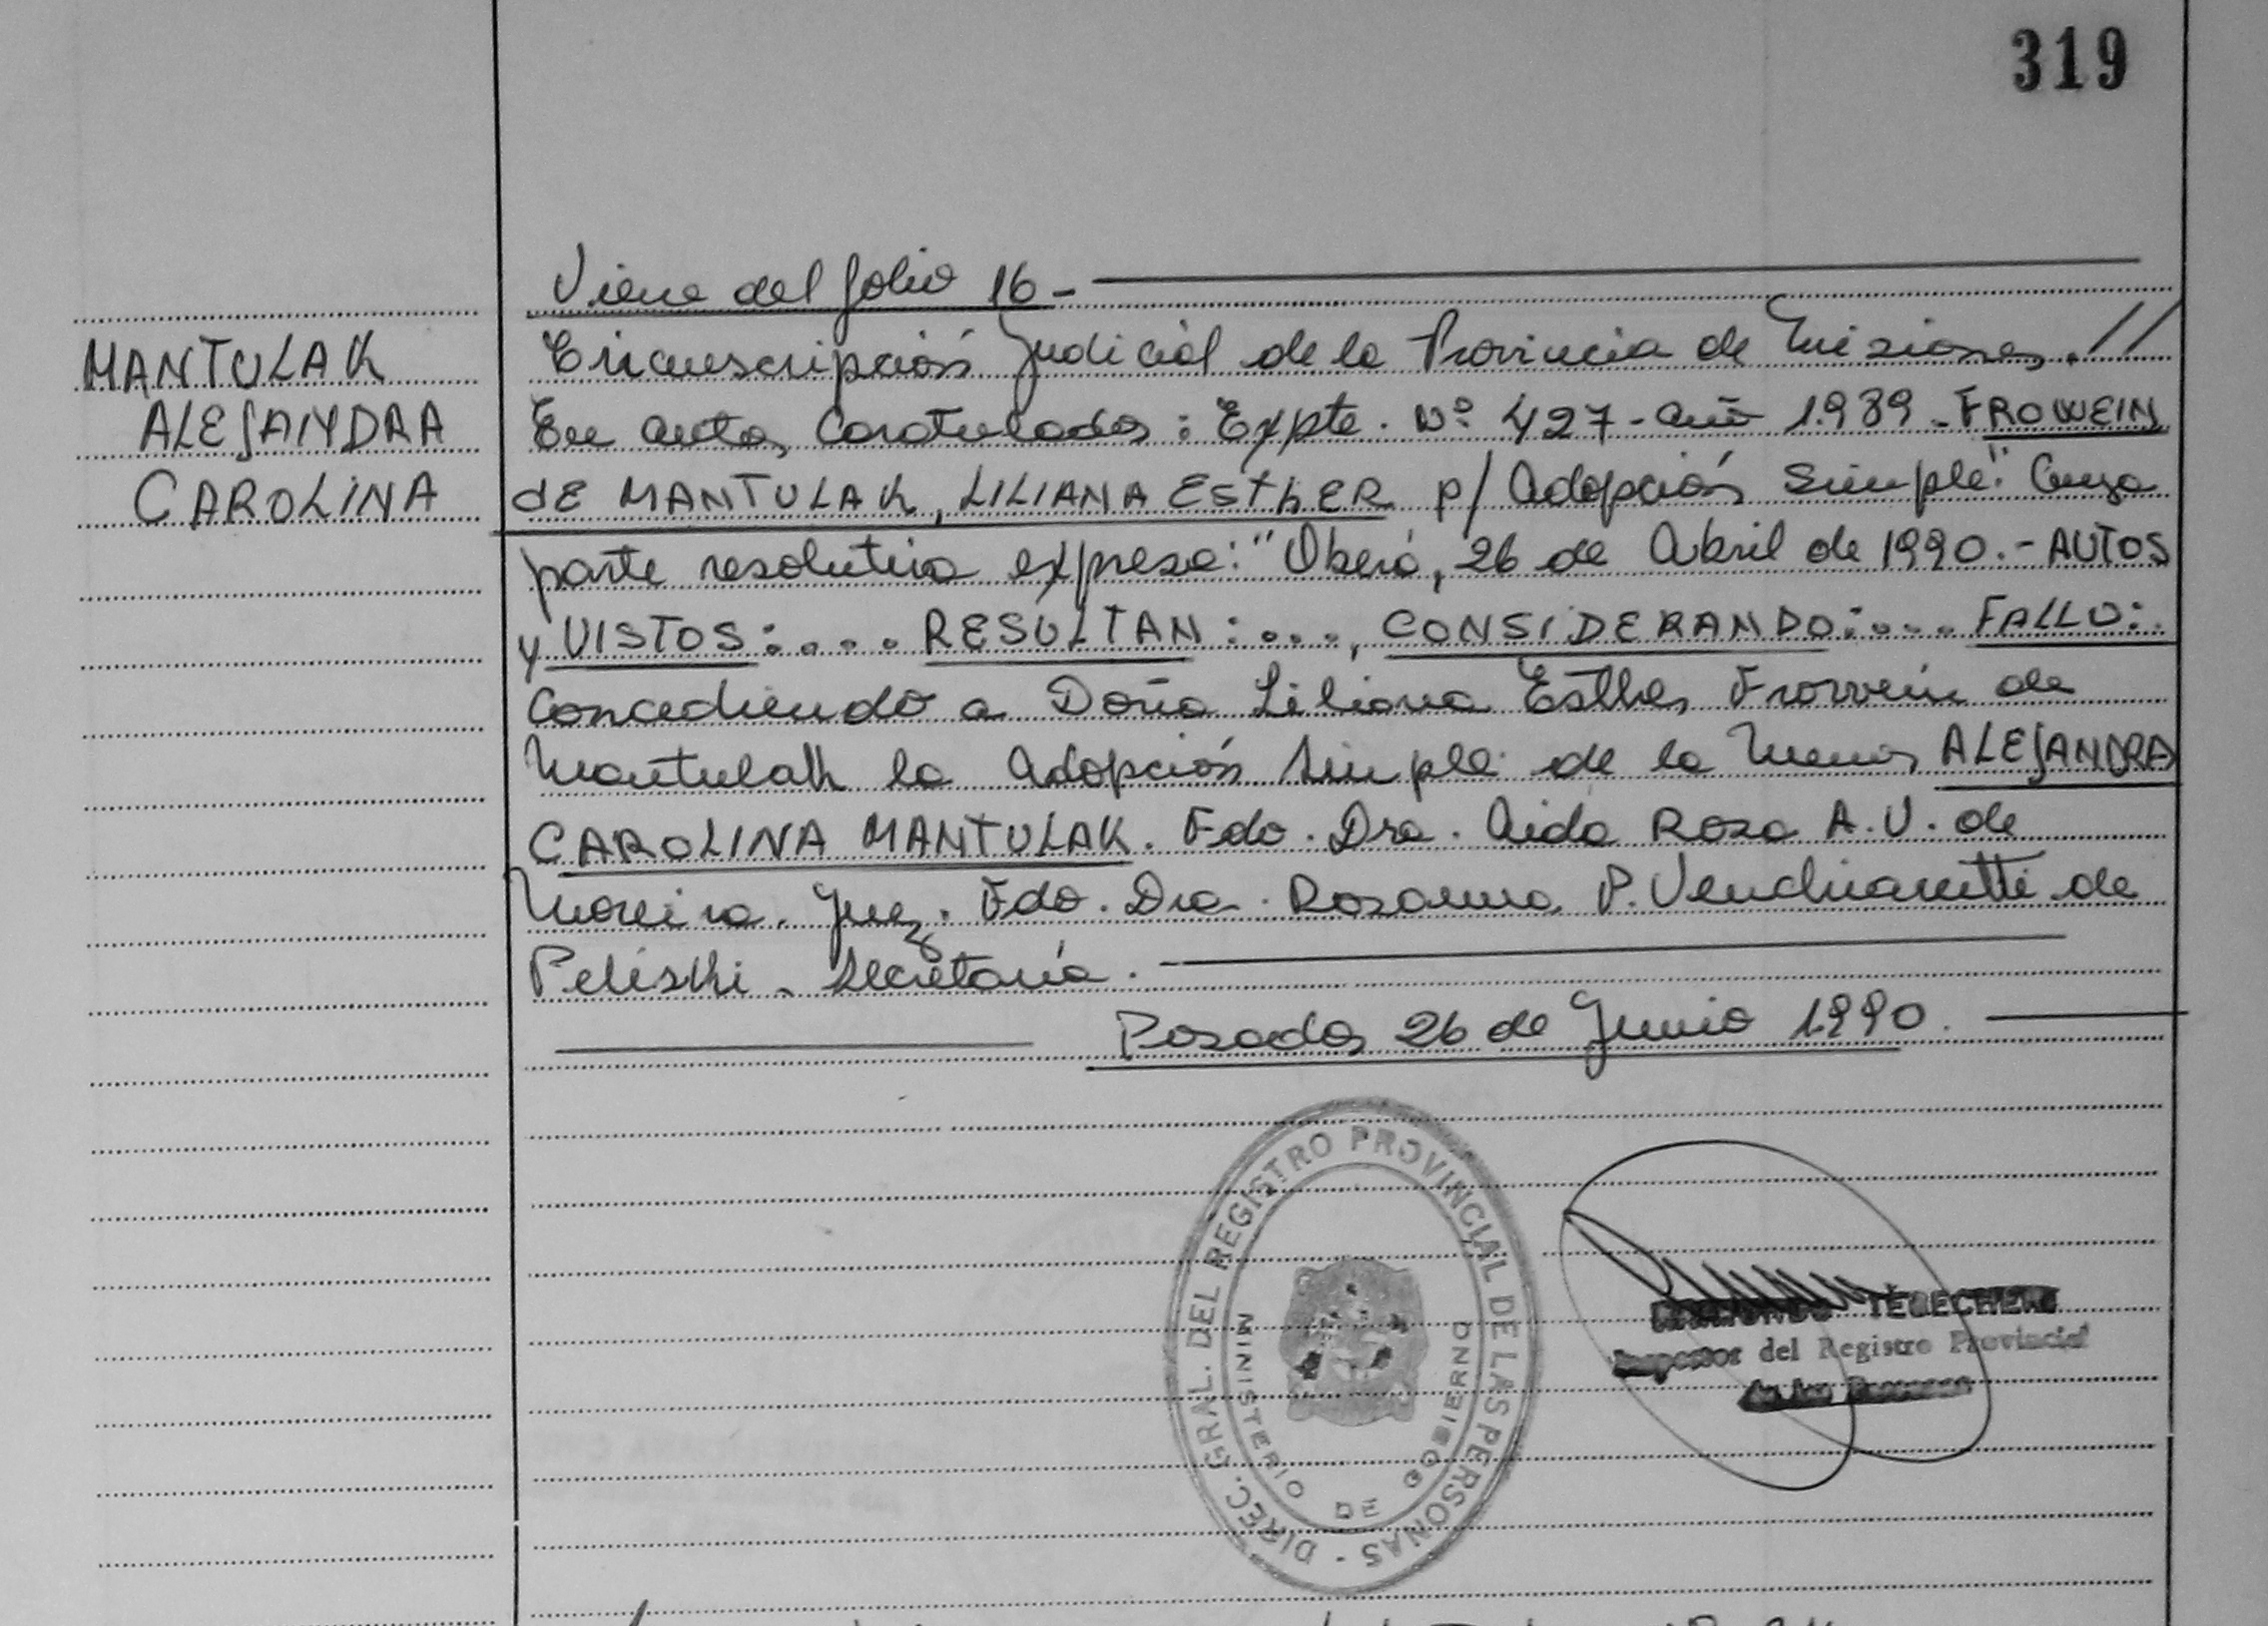 319
Viene del folio 16 -
MANTULAK
ALEJANDRA
CAROLINA
Circunscripción Judicial de la Provincia de Misiones.//
En autos, Caratulados: Expte. Nº 427- año 1.989 - FROWEIN
dE MANTULAK, LILIANA ESTHER p/ Adopción Simple." Cuya
parte resolutiva expresa: "Oberá, 26 de Abril de 1990.- AUTOS
y VISTOS: .... RESULTAN: ...., CONSIDERANDO: .... FALLO:
Concediendo a Doña Liliana Esther Frowein de
Mantulak la Adopción Simple de la Menor ALEJANDRA
CAROLINA MANTULAK. Fdo. Dra. Aida Rosa A.V. de
Moreira. Juez. Fdo. Dra. Rosanna P. Venchiarutti de
Peliski - Secretaria.
Posadas 26 de Junio 1.990.
DIREC. GRAL. DEL REGISTRO PROVINCIAL DE LAS PERSONAS -
MINISTERIO DE GOBIERNO
Inspector del Registro Provincial
de las Personas